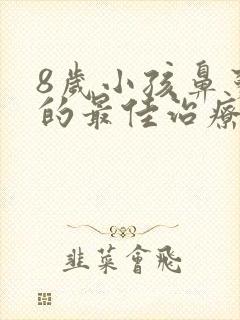 8歲小孩鼻
的最佳治療
韭菜會飛